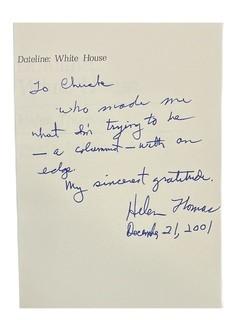 Dateline: White House
To Chuck
who made me
what I'm trying to be
— a columnist — with an
edge.
My sincerest gratitude.
Helen Thomas
December 21, 2001